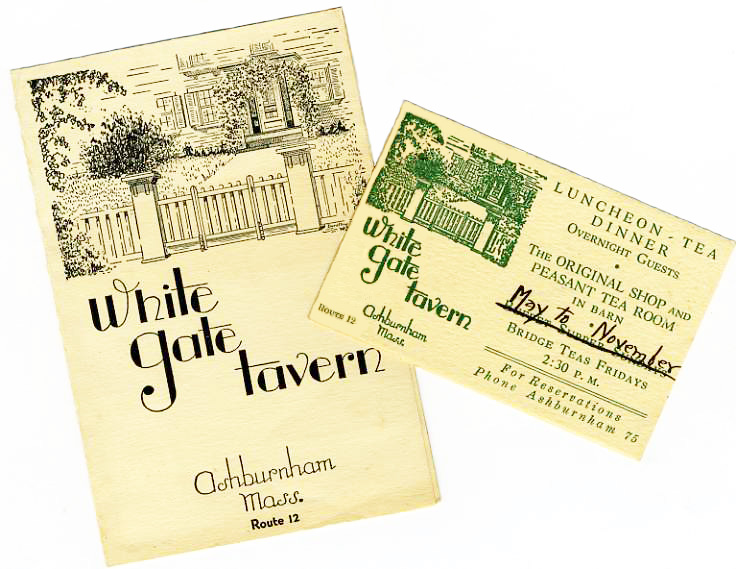 White
gate
tavern
Ashburnham
Mass.
Route 12
White
gate
tavern
ROUTE 12
Ashburnham
Mass.
LUNCHEON - TEA
DINNER
OVERNIGHT GUESTS
•
THE ORIGINAL SHOP AND
PEASANT TEA ROOM
IN BARN
May to November
SUPPER SUNDAYS
BRIDGE TEAS FRIDAYS
2:30 P. M.
For Reservations
Phone Ashburnham 75